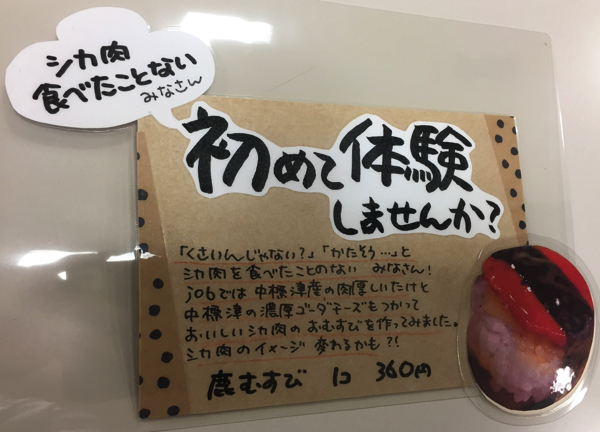 シカ肉
食べたことない
みなさん
初めて体験
しませんか?
「くさいんじゃない?」「かたそう…」と
シカ肉を食べたことのない みなさん!
jobでは 中標津産の肉厚しいたけと
中標津の濃厚ゴーダチーズもつかって
おいしいシカ肉のおむすびを作ってみました。
シカ肉のイメージ 変わるかも?!
鹿むすび 1コ 360円